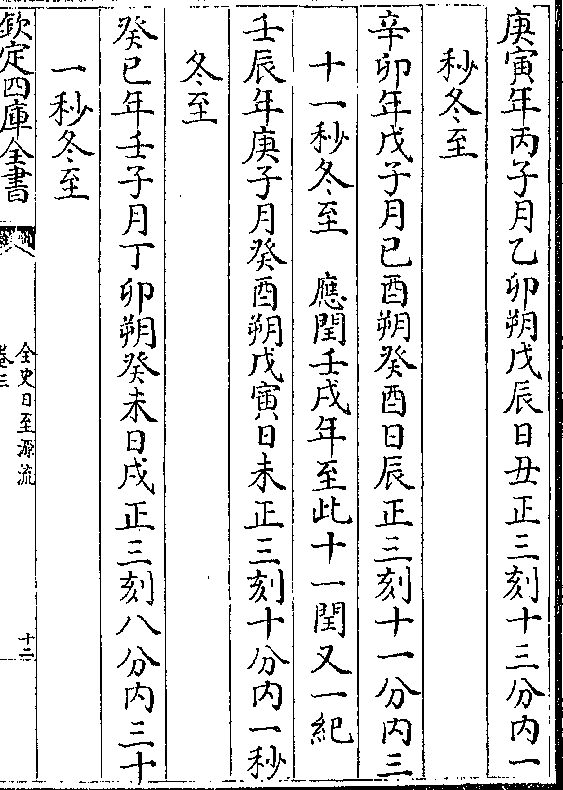 庚寅年丙子月乙卯朔戊辰日丑正三刻十三分内一
秒冬至
辛卯年戊子月已酉朔癸酉日辰正三刻十一分内三
十一秒冬至　應閏壬戌年至此十一閏又一紀
壬辰年庚子月癸酉朔戊寅日未正三刻十分内一秒
冬至
癸巳年壬子月丁卯朔癸未日戌正三刻八分内三十
一秒冬至
欽定四庫全書
全史日至源流
卷三
十二